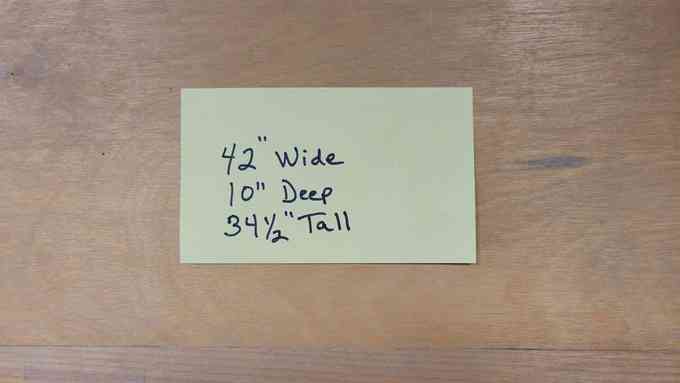 42" Wide
10" Deep
34½" Tall